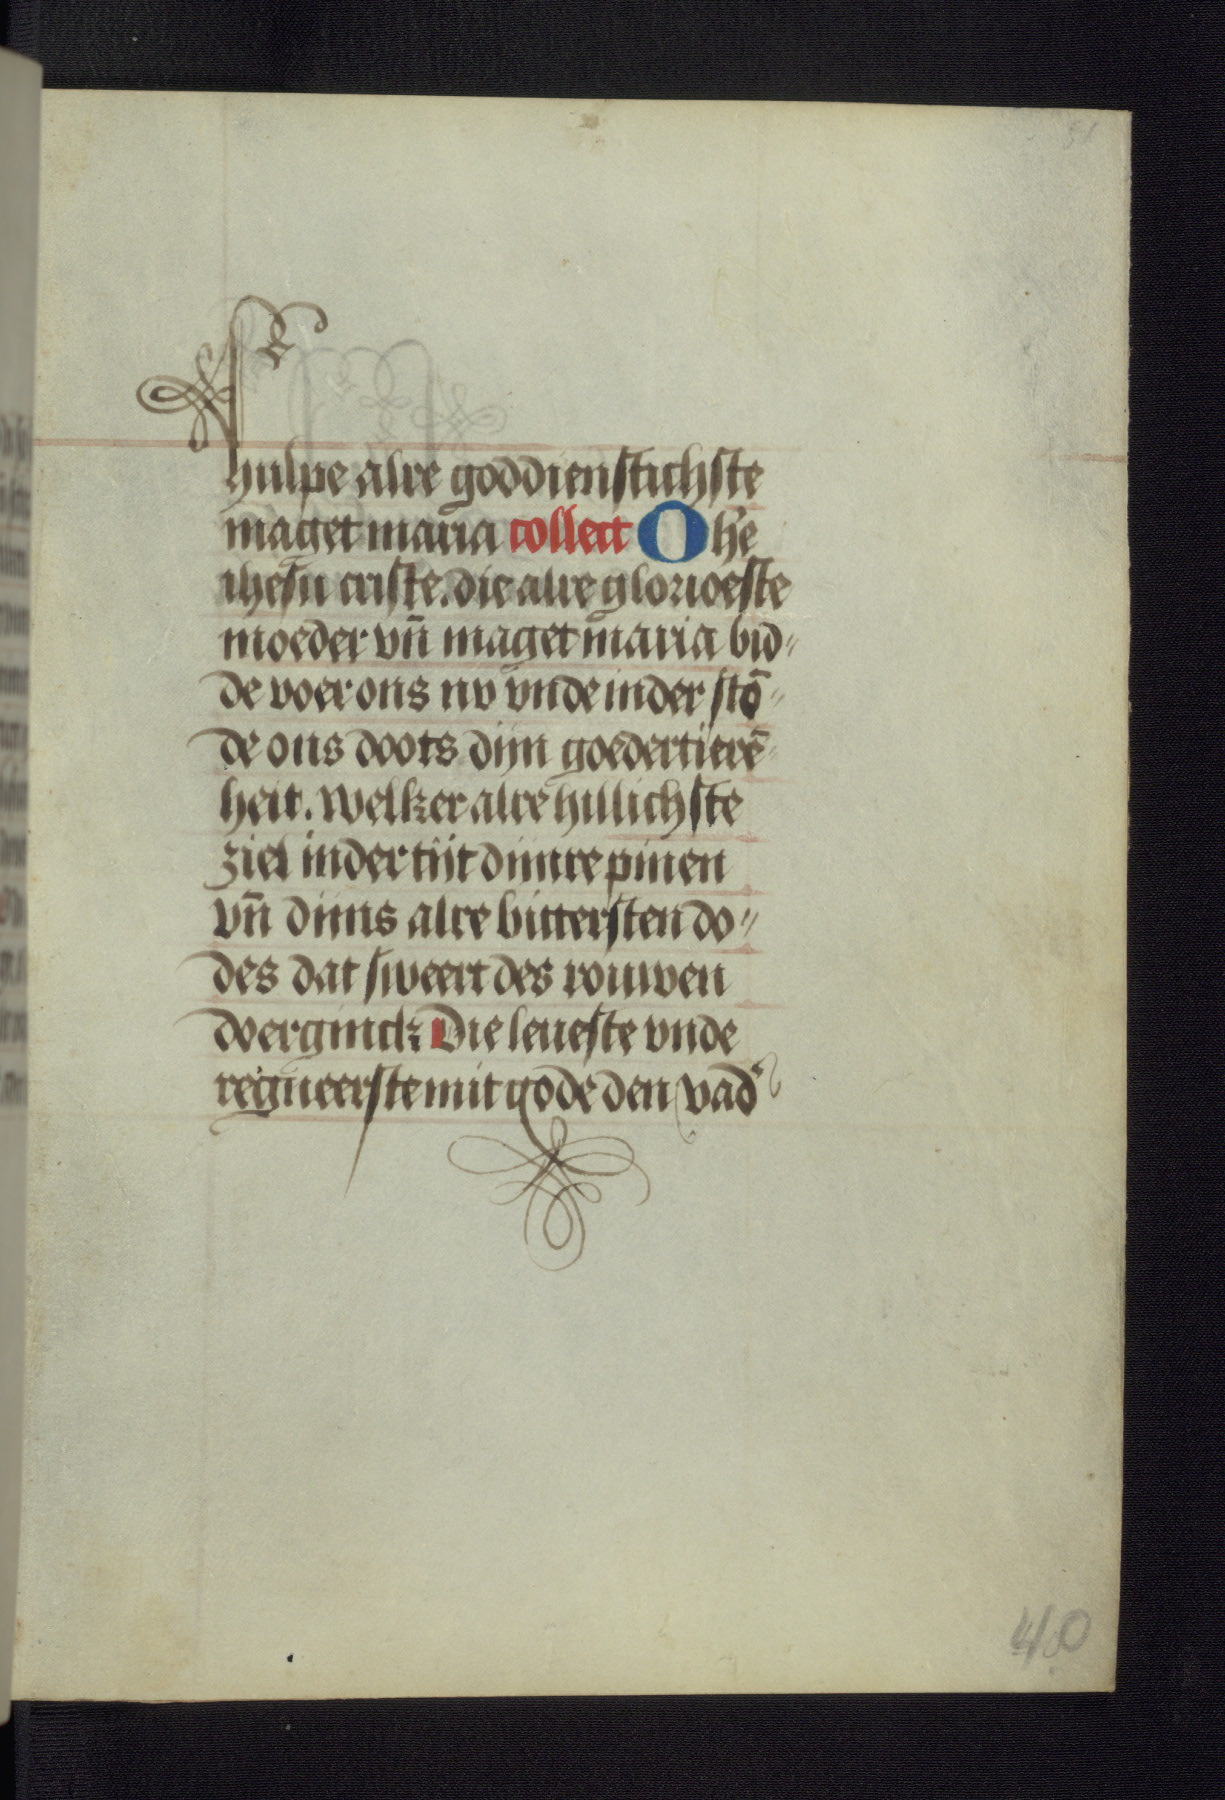 51
hulpe alre goddienstichste
maget maria collect O h'e
ihesu criste. die alre glorioeste
moeder vn̄ maget maria bid⸗
de voer ons nv vnde in der stō⸗
de ons doots dijn goedertierē⸗
heit. Welker alre hillichste
ziel in der tijt dinre pinen
vn̄ dijns alre bittersten do⸗
des dat sweert des rouwen
doerginck Die leueste vnde
regneerste mit gode den vad'
40